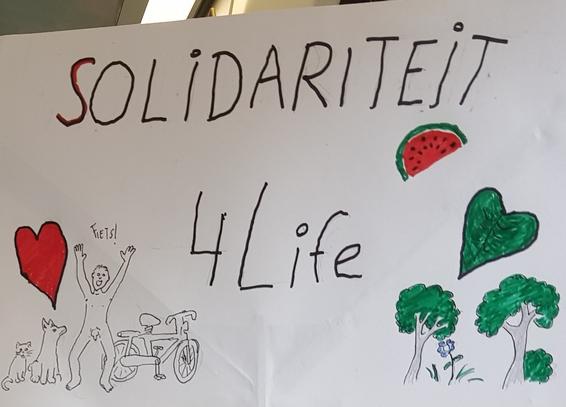 SOLiDARITEIT
FIETS!
4Life